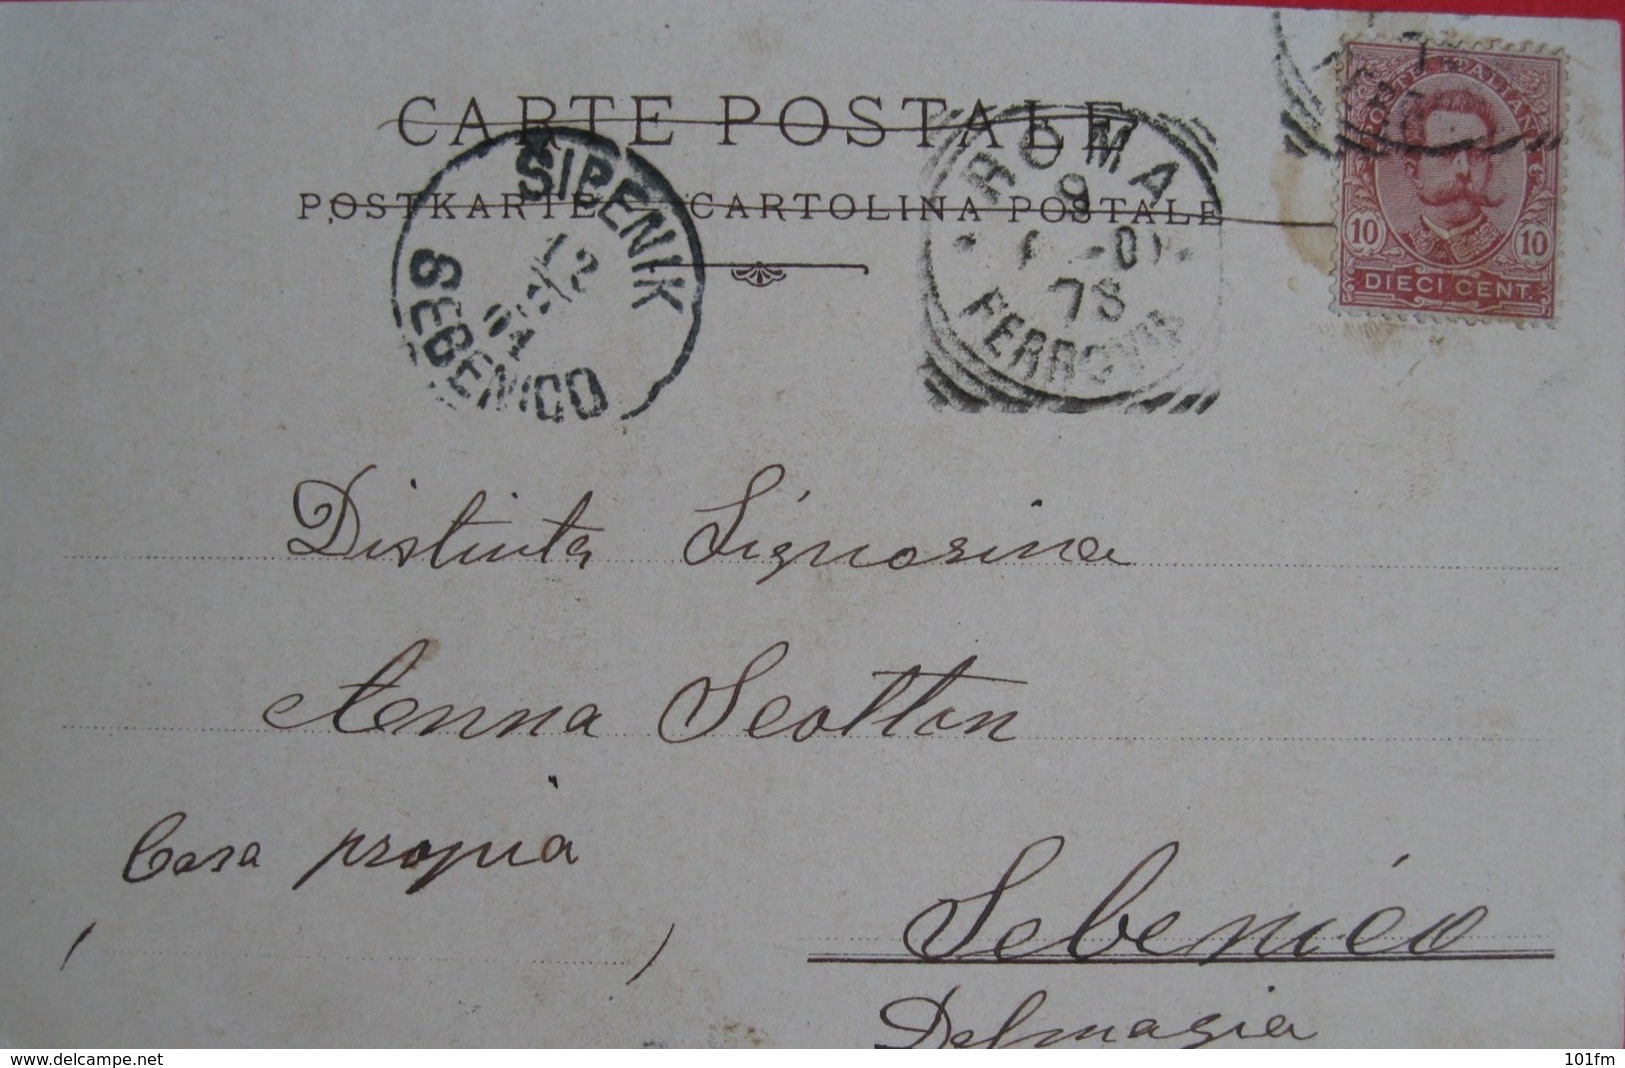 CARTE POSTALE
POSTKARTE — CARTOLINA POSTALE
ŠIBENIK
12
SEBENICO
ROMA
9
-01
73
FERROVIA
POSTE ITALIANE
10 10
DIECI CENT.
Distinta Signorina
Anna Scotton
Casa propria
( )
Sebenico
Dalmazia
www.delcampe.net
101fm